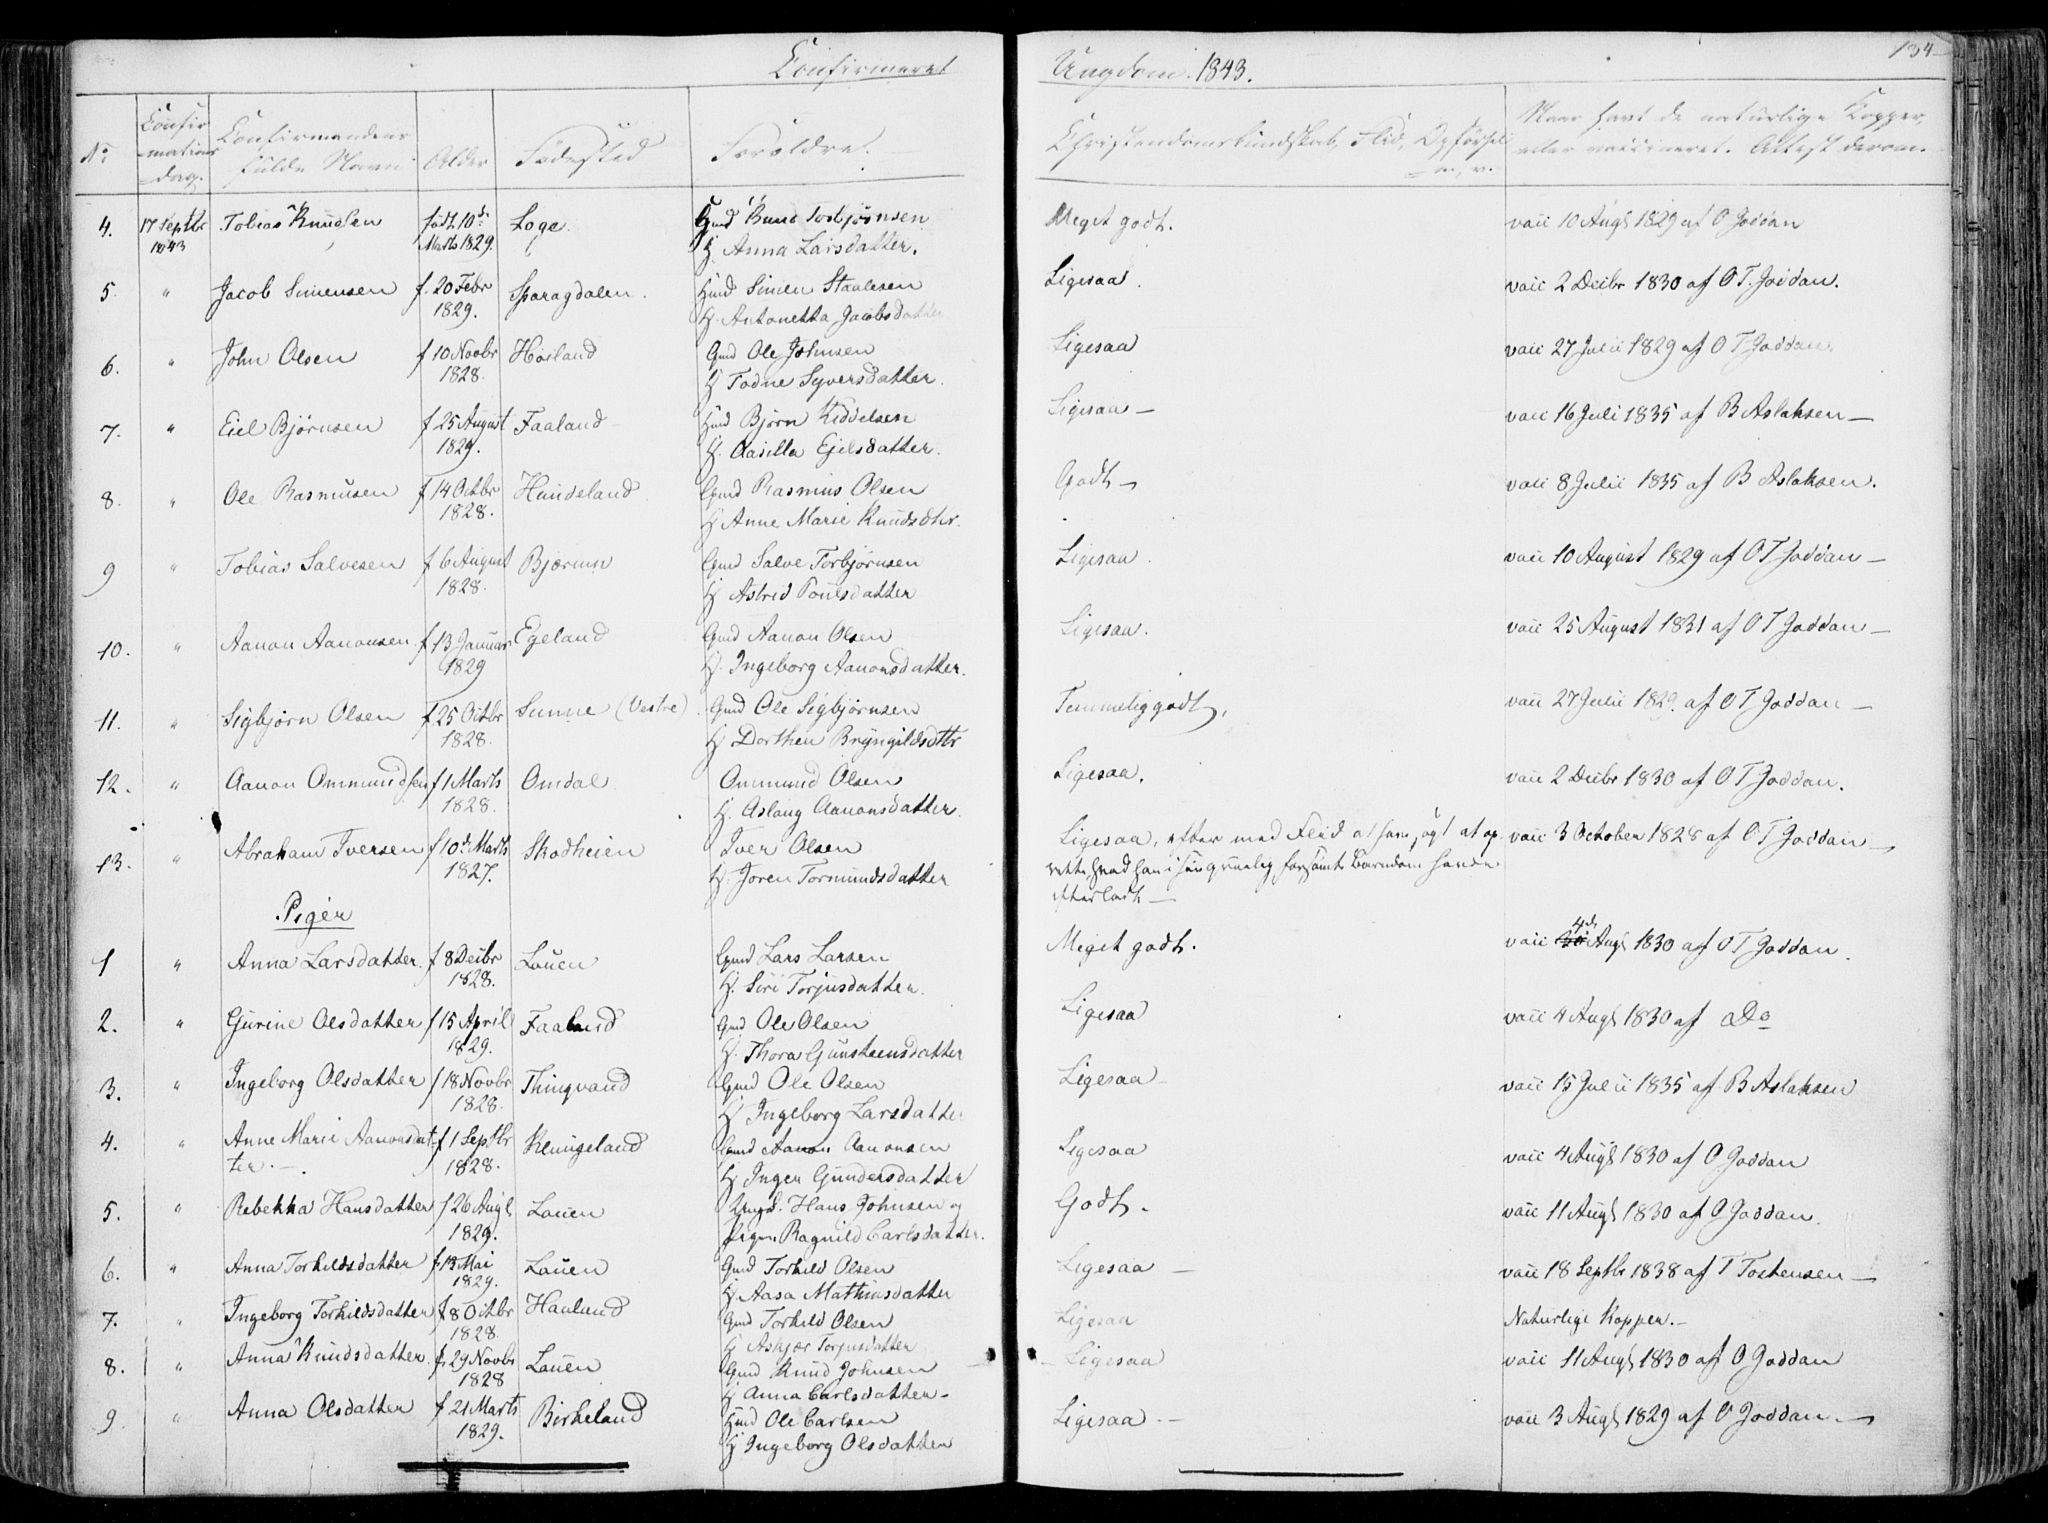 Confirmeret Ungdom. 1843.
134
No
Confirmations dag.
Confirmandens fulde Navn
Alder
Fødested
Foreldre.
Christendomskundskab, Flid, Opførsel m. v.
Naar havt de naturlige Kopper, eller vaccineret. Attest derom.
4. 17 Septbr 1843 Tobias Knudsen født 10de Marts 1829. Loge. Gmd Knud Torbjørnsen
H Anna Larsdatter. Meget godt. vacc 10 Augt 1829 af O Joddan
5. " Jacob Simensen f. 20 Febr 1829. Sparagdalen. Hmd Simen Staalesen
H. Antonetta Jacobsdatter Ligesaa. vacc 2 Decbr 1830 af O T. Joddan.
6. " John Olsen f 10 Novbr 1828. Høiland Gmd Ole Johnsen
H Todne Syversdatter. Ligesaa vacc 27 Julii 1829 af O T Joddan.
7. " Eiel Bjørnsen f 25 August 1829. Faaland Hmd Bjørn Kiddelsen
H. Aasilla Ejelsdatter. Ligesaa — vacc 16 Juli 1835 af B Aslaksen —
8. " Ole Rasmusen f 14 Octbr 1828. Hundeland Gmd Rasmus Olsen
H Anne Marie Knudsdtr. Godt — vacc 8 Julii 1835 af B Aslaksen.
9 " Tobias Salvesen f 6 August 1828. Bjørnm Gmd Salve Torbjørnsen
H Astrid Poulsdatter Ligesaa vacc 10 August 1829 af O T Joddan —
10. " Aanon Aanonsen f 13 Januar 1829 Egeland Gmd Aanon Olsen
H. Ingeborg Aanonsdatter. Ligesaa. vacc 25 August 1831 af O T Joddan —
11. " Sigbjørn Olsen f 25 Octbr 1828. Sunne (Vestre) Gmd Ole Sigbjørnsen
H Dorthea Bryngildsdtr Temmelig godt, vacc 27 Julii 1829. af O T Joddan —
12. " Aanon Ommundsen f 1 Marts 1828. Omdal Ommund Olsen
H. Aslaug Aanonsdatter. Ligesaa. vacc 2 Decbr 1830 af O T Joddan.
13. " Abraham Iversen f 10de Marts 1827. Skodheien Iver Olsen
H. Joren Tormundsdatter Ligesaa, efter med Flid at have søgt at op
rette, hvad han i sin gruelig forsømte Barndom havde
efterladt — vacc 3 October 1828 af O T Joddan —
Piger
1 " Anna Larsdatter f 8 Decbr 1828. Lauen Gmd Lars Larsen
H. Siri Torjusdatter. Meget godt. vacc 4de Augt 1830 af O T Joddan.
2. " Gurine Olsdatter f 15 April 1829. Faaland Gmd Ole Olsen
H. Thora Gunsteensdatter Ligesaa vacc 4 Augt 1830 af Do
3. " Ingeborg Olsdatter f 18 Novbr 1828. Thingvand Gmd Ole Olsen
H Ingeborg Larsdatter Ligesaa — vacc 15 Julii 1835 af B Aslaksen
4. " Anne Marie Aanonsdatter. —. f 1 Septbr 1828. Rengeland Gmd Aanon Aanonsen
H Inger Gundersdatter Ligesaa vacc 4 Augt 1830 af O Joddan
5. " Rebekka Hansdatter f 26 Augt 1829. Lauen Ungk. Hans Johnsen og
Pigen Ragnild Carlsdatter. Godt. vacc 11 Augt 1830 af O Joddan.
6. " Anna Torkildsdatter f. 13 Mai 1829. Lauen Gmd Torkild Olsen
H Aasa Mathiasdatter Ligesaa — vacc 18 Septbr 1838 af T Tostensen —
7. " Ingeborg Torkildsdatter f 8 Octbr 1828. Haaland Gmd Torkild Olsen
H Askjær Torjusdatter Ligesaa Naturlige Kopper. —
8. " Anna Knudsdatter. f. 29 Novbr 1828 Lauen Gmd Knud Johnsen
H Anna Carlsdatter — Ligesaa vacc 11 Augt 1830 af O Joddan
9. " Anna Olsdatter f 21 Marts 1829. Birkeland Hmd Ole Carlsen
H Ingeborg Olsdatter Ligesaa — vacc 3 Augt 1829 af O Joddan. —